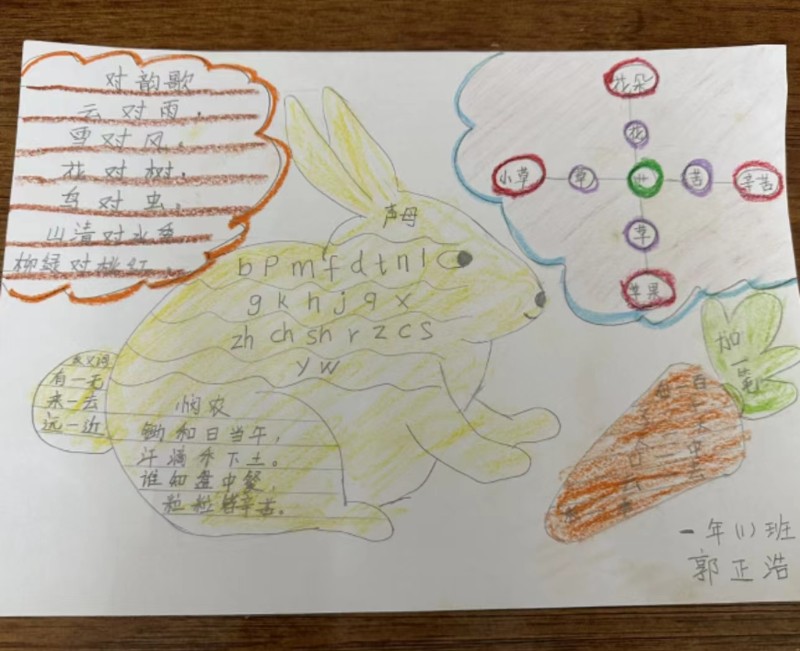 对韵歌
云对雨。
雪对风。
花对树。
鸟对虫。
山清对水秀
柳绿对桃红。
花朵
花
小草
草
艹
苦
辛苦
苹
苹果
声母
b p m f d t n l
g k h j q x
zh ch sh r z c s
y w
反义词
有一无
来一去
远一近
悯农
锄禾日当午，
汗滴禾下土。
谁知盘中餐，
粒粒皆辛苦。
加一笔
一年(1)班
郭正浩